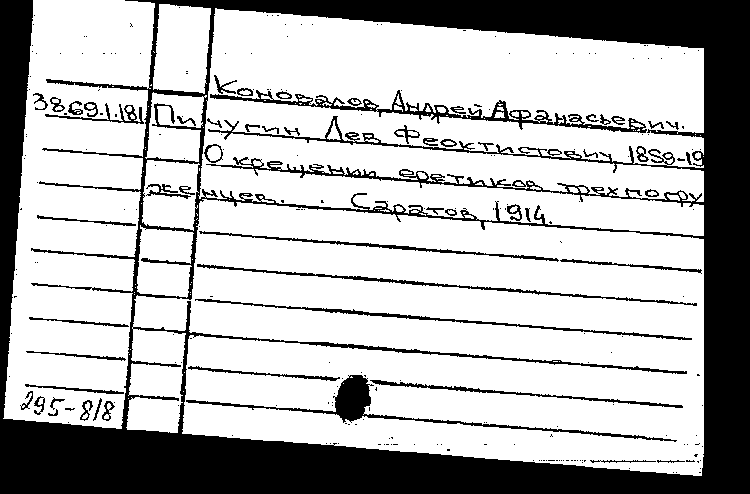 Коновалов, Андрей Афанасьевич.
38.69.1.181 Пичугин, Лев Феоктистович, 1859-19
О крещении еретиков трехпогру
женцев. . Саратов, 1914.
295-818